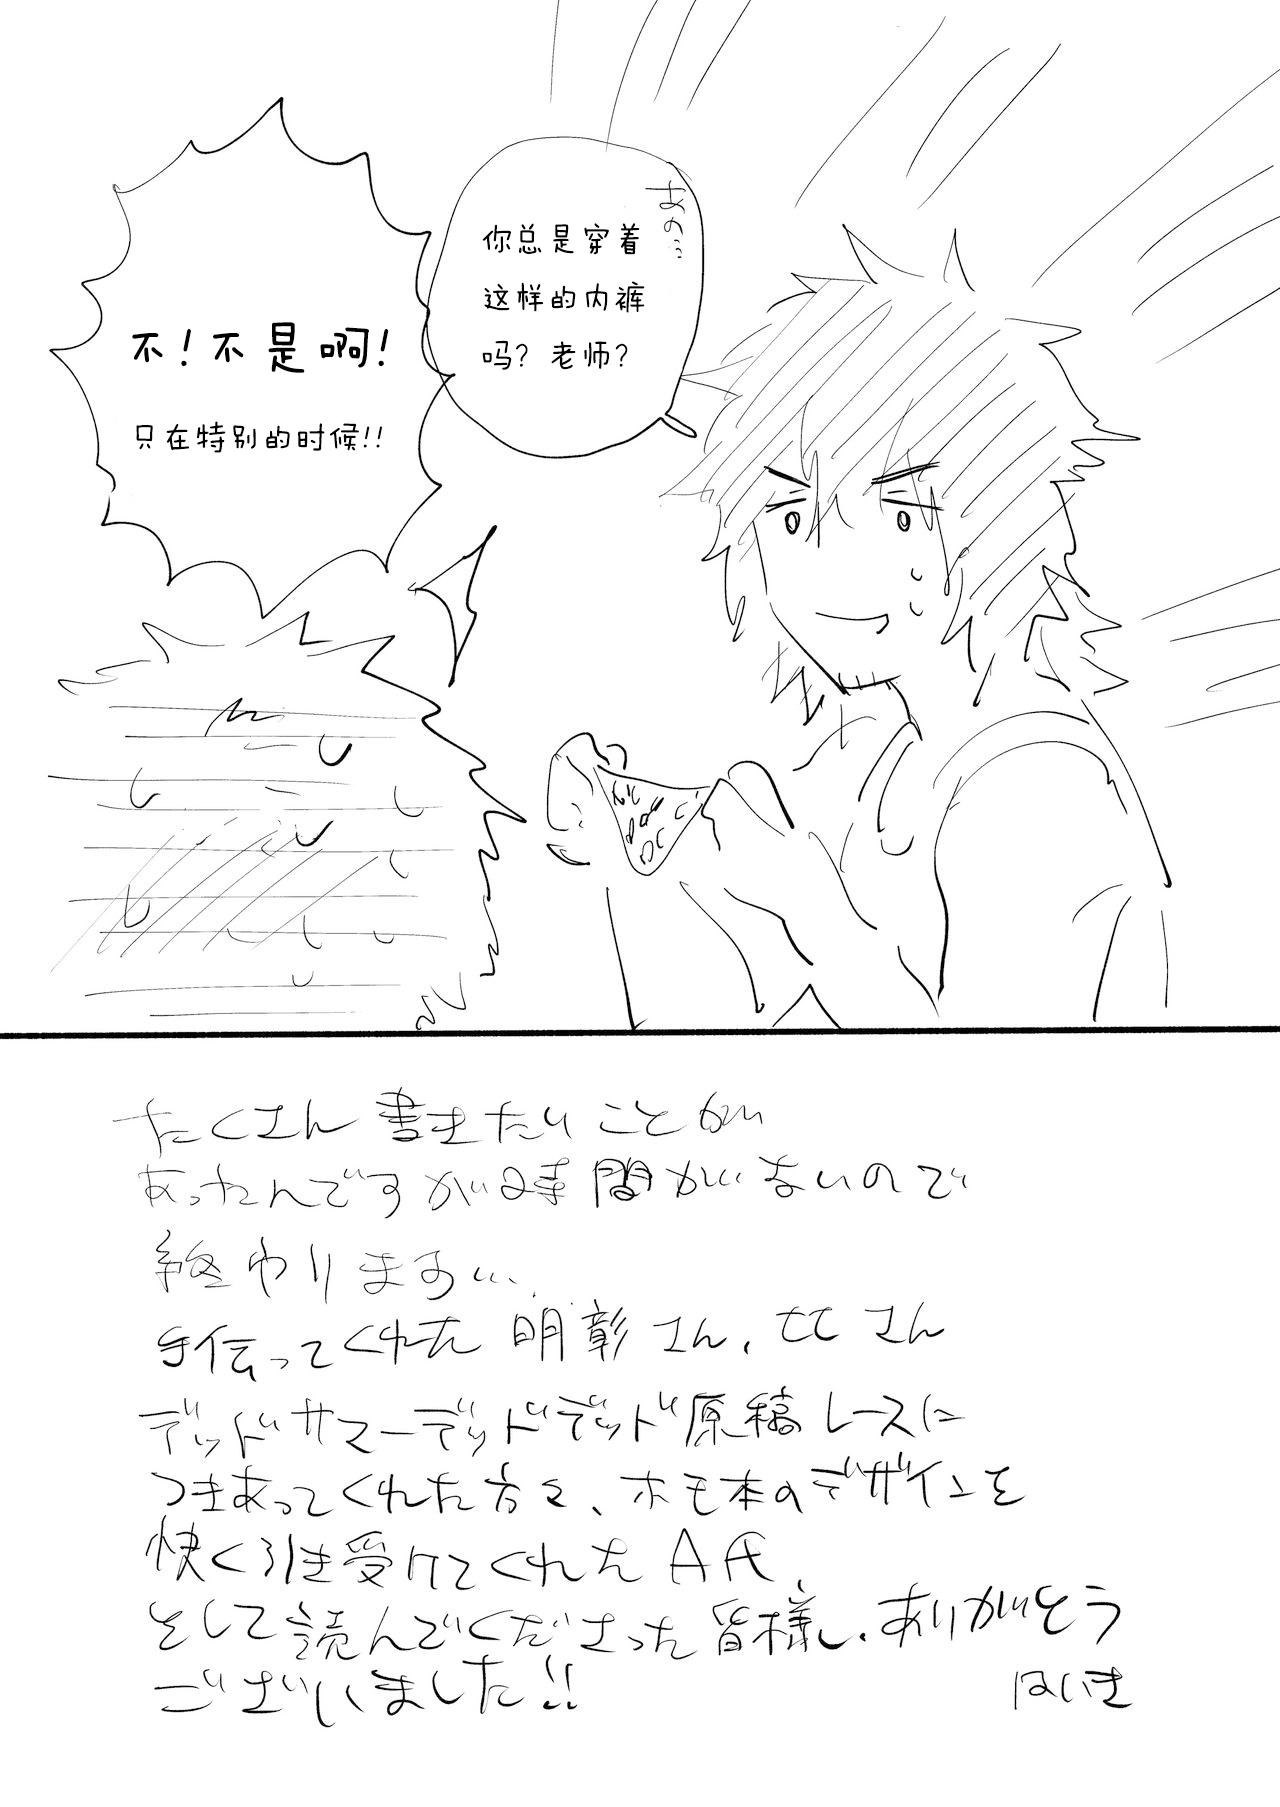 あの…
你总是穿着
这样的内裤
吗？老师？
不！不是啊！
只在特别的时候!!
たくさん書きたいことが
あったんですが時間がないので
終わります…
手伝ってくれた明彰さん、ヒヒさん
デッドサマーデッドデッド原稿レースに
つきあってくれた方々、ホモ本のデザインを
快く引き受けてくれたA氏
そして読んでくださった皆様、ありがとう
ございました!!
はいき